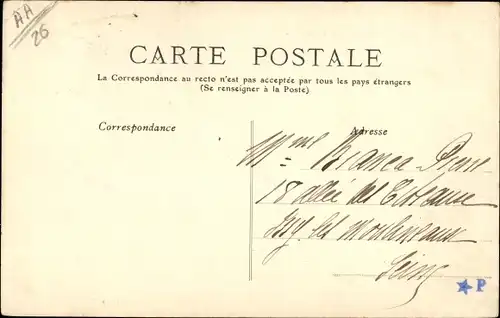 AA
26
CARTE POSTALE
La Correspondance au recto n'est pas acceptée par tous les pays étrangers
(Se renseigner à la Poste)
Correspondance
Adresse
Mme Bianca
18 allée des Coteaux
Issy les Moulineaux
Seine
P